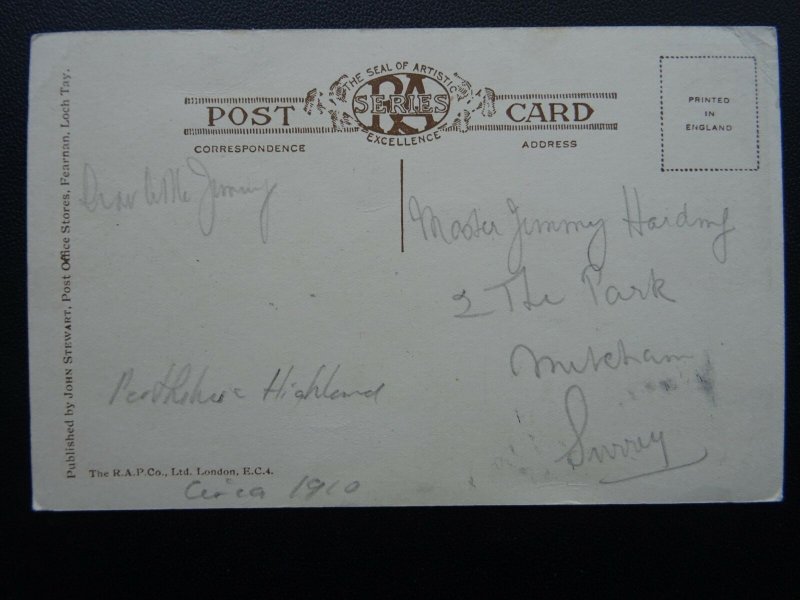 THE SEAL OF ARTISTIC
RA
SERIES
EXCELLENCE
POST CARD
CORRESPONDENCE
ADDRESS
PRINTED
IN
ENGLAND
Dear little Jimmy
Master Jimmy Harding
2 The Park
Mitcham
Surrey
Perthshire Highland
Published by JOHN STEWART, Post Office Stores, Fearnan, Loch Tay.
The R.A.P.Co., Ltd. London, E.C.4.
Circa 1910